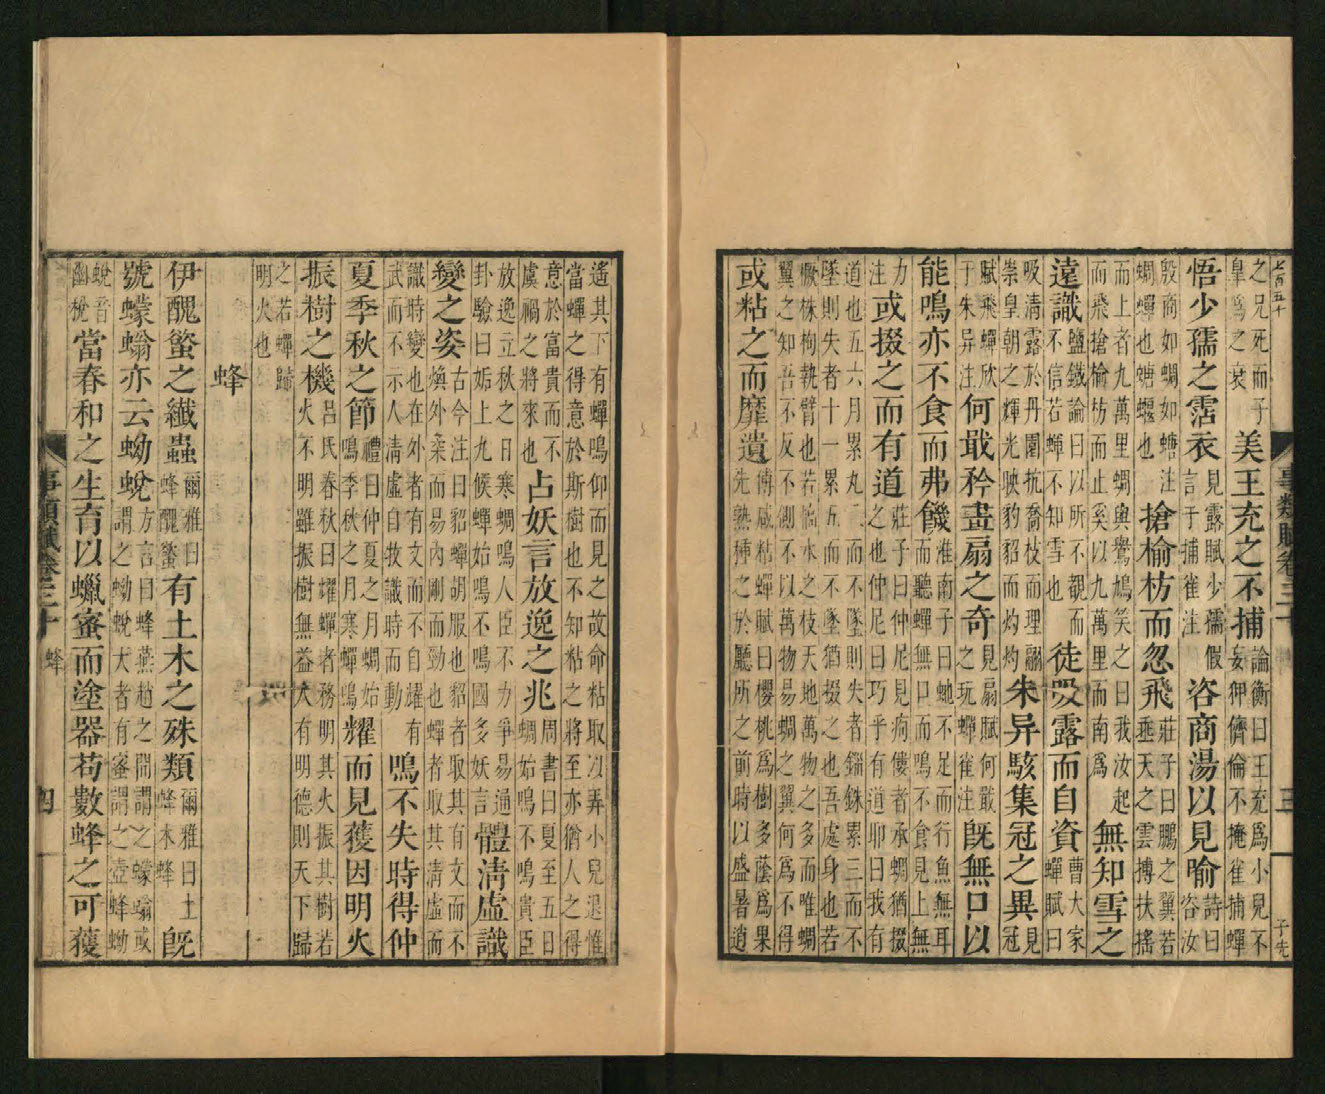 七百五十
事類賦卷三十 三 子先
之兄死而子皐為之衰美王充之不捕論衡曰王充為小兒不妄狎儕倫不掩雀捕蟬
悟少孺之霑衣見露賦少孺假言于捕雀注咨商湯以見喻詩曰咨汝
殷商如蜩如螗注蜩蟬也螗蝘也搶榆枋而忽飛莊子曰鵬之翼若垂天之雲搏扶搖
而上者九萬里蜩與鷽鳩笑之曰我汝起而飛搶榆枋而止奚以九萬里而南為無知雪之
遠識鹽鐵論曰以所不覩而不信若蟬不知雪也徒吸露而自資曹大家蟬賦曰
吸清露於丹園抗喬枝而理翮崇皇朝之輝光映豹貂而灼灼朱异駭集冠之異見冠
賦飛蟬欣于朱异注何戢矜畫扇之奇見扇賦何戢之玩蟬雀注既無口以
能鳴亦不食而弗饑淮南子曰虵不足而行魚無耳而聽蟬無口而鳴不食見上無
力注或掇之而有道莊子曰仲尼見痀僂者承蜩猶掇之也仲尼曰巧乎有道耶曰我有
道也五六月累丸二而不墜則失者錙銖累三而不墜則失者十一累五而不墜猶掇之也吾處身也若
橛株枸執臂也若槁木之枝天地萬物之多而唯蜩翼之知吾不反不側不以萬物易蜩之翼何為不得
或粘之而靡遺傅咸粘蟬賦曰櫻桃為樹多蔭為果先熟種之於廳所之前時以盛暑逍
遙其下有蟬鳴仰而見之故命粘取以弄小兒退惟當蟬之得意於斯樹也不知粘之將至亦猶人之得
意於富貴而不虞禍之將來也占妖言放逸之兆周書曰夏至五日蜩始鳴不鳴貴臣
放逸立秋之日寒蜩鳴人臣不力爭易通卦驗曰姤上九候蟬始鳴不鳴國多妖言體清虛識
變之姿古今注曰貂蟬胡服也貂者取其有文而不煥外柔而易內剛而勁也蟬者取其清虛而
識時變也在外者有文而不自耀有武而不示人清虛自牧識時而動鳴不失時得仲
夏季秋之節禮曰仲夏之月蜩始鳴季秋之月寒蟬鳴耀而見獲因明火
振樹之機呂氏春秋曰耀蟬者務明其火振其樹若火不明雖振樹無益人有明德則天下歸
之若蟬歸明火也
蜂
伊醜螸之纖蟲爾雅曰蜂醜螸有土木之殊類爾雅曰土蜂木蜂既
號蠓螉亦云蚴蛻方言曰蜂燕趙之間謂之蠓螉或謂之蚴蛻大者有蜜謂之壺蜂蚴
蛻音幽梲當春和之生育以蠟蜜而塗器苟數蜂之可獲
事類賦卷三十 蜂 四